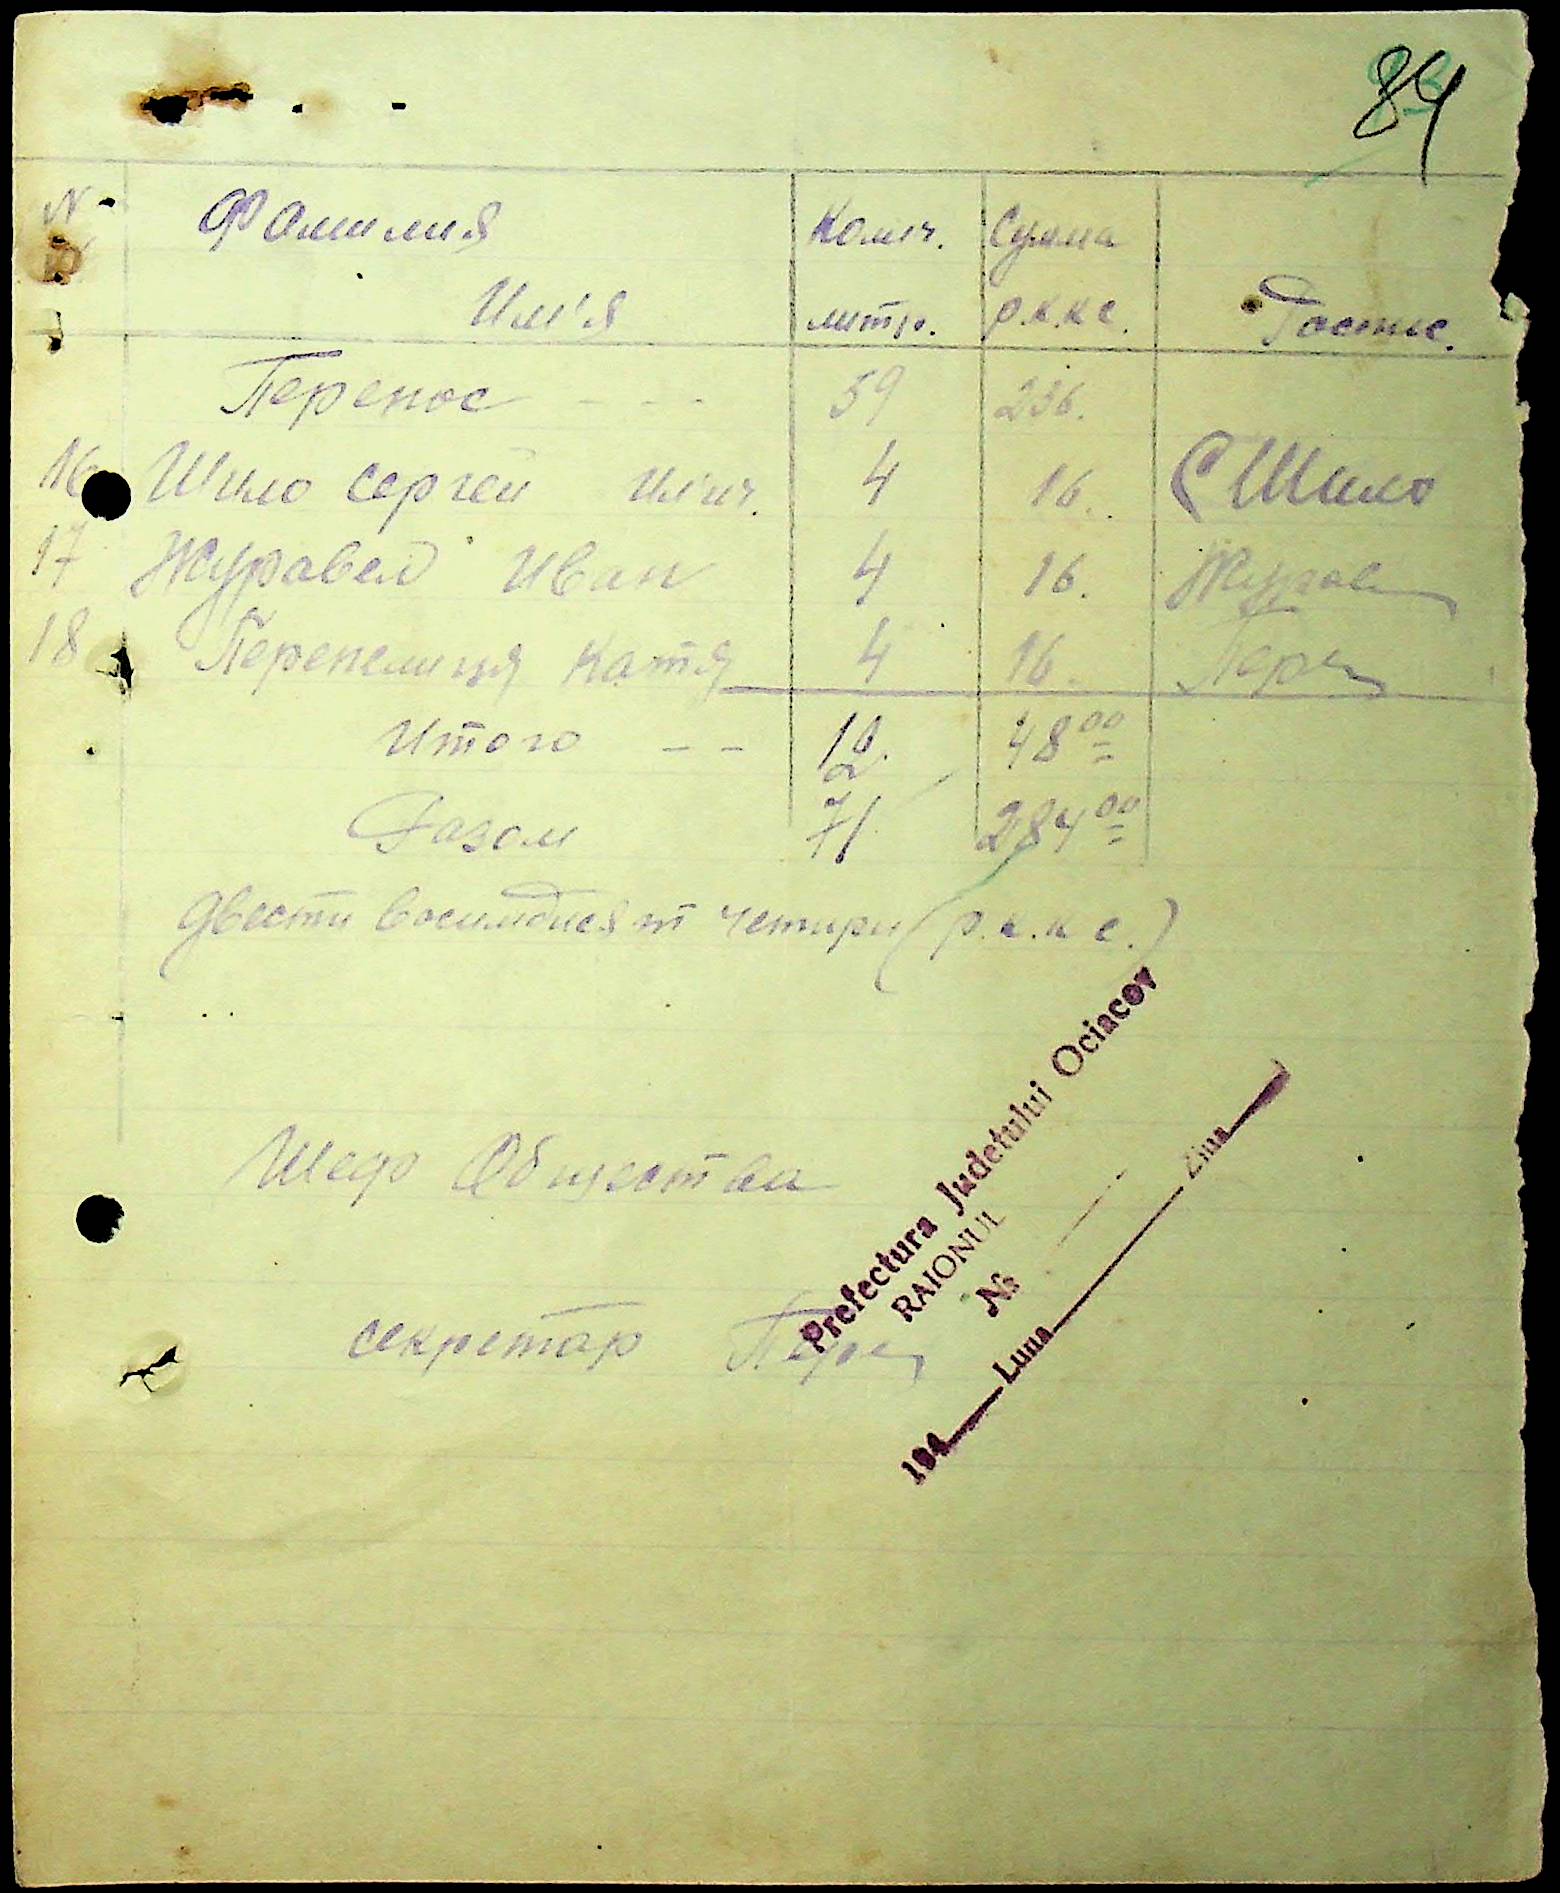 84
№ Фамилия Колич. Сумма
Им'я литр. р.к.к с. Роспис.
Перенос - - - 59 236.
16 Шило Сергей Ил'ич. 4 16. С Шило
17 Журавел Иван 4 16. Журав
18 Перепелиця Катя 4 16. Пере
Итого - - 12. 48 00
Разом 71 284 00
Двести восимдисят четири (р.к.к с.)
Шеф Общества
секретар Пере
Prefectura Judetului Ociacov
RAIONUL
№
194 Luna Ziua